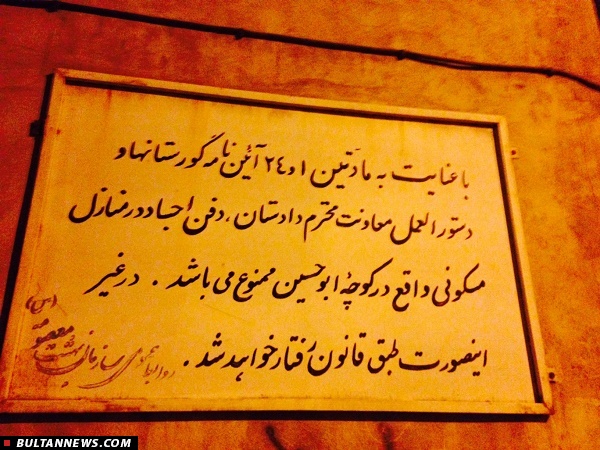 با عنایت به مادّتین ۱ و ۲٤ آئین نامه گورستانها و
دستورالعمل معاونت محترم دادستان ، دفن اجساد در منازل
مسکونی واقع در کوچهٔ ابوحسین ممنوع می باشد . در غیر
اینصورت طبق قانون رفتار خواهد شد .
روابط عمومی سازمان بهشت معصومه (س)
BULTANNEWS.COM